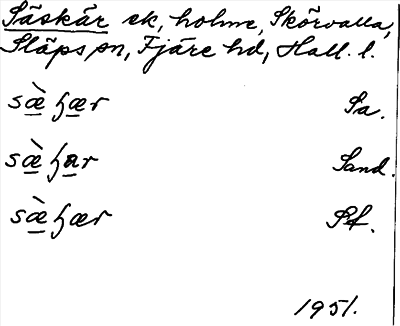 Säskär ek, holme, Skörvalla,
Släps sn, Fjäre hd, Hall. l.
sæ̀ ɧær Sa.
sæ̀ ɧar Sand.
sæ̀ ɧær Sf.
1951.